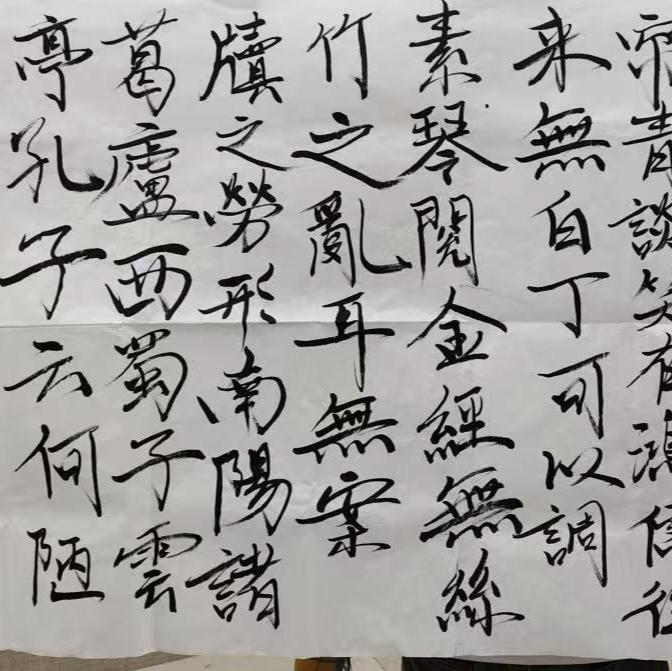 帘青談笑有鴻儒往
来無白丁可以調
素琴閱金經無絲
竹之亂耳無案
牘之勞形南陽諸
葛廬西蜀子雲
亭孔子云何陋